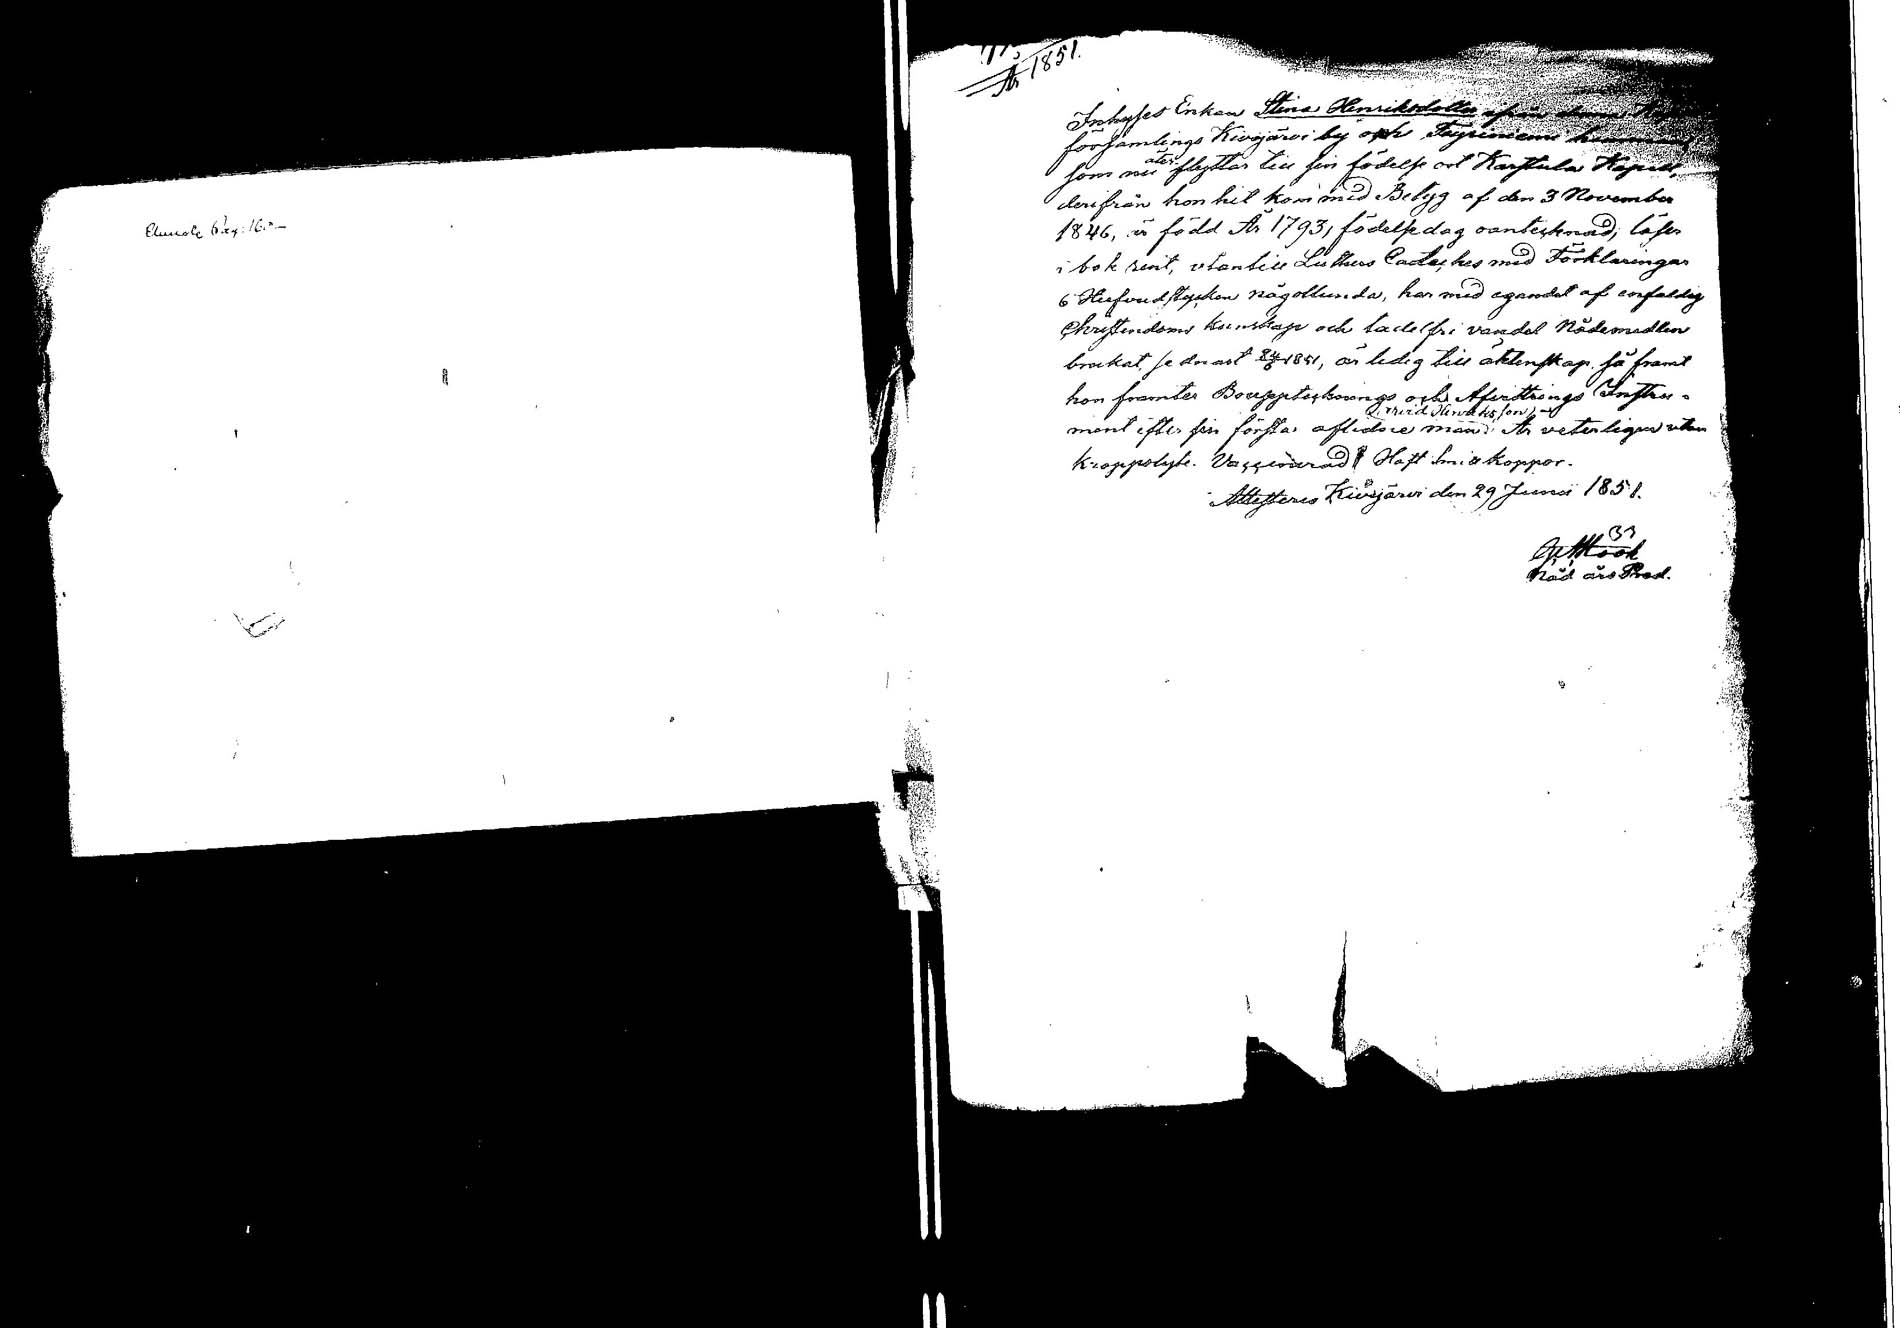 År 1851.
Inhyses Enkan Stina Henriksdotter ifrån denna
församlings Kivijärvi by och
som nu åter flyttar till sin födelse ort Karstula Kapell,
derifrån hon hit kom med Betyg af den 3 November
1846, är född År 1793, födelsedag oantecknad, läser
i bok rent, utantill Luthers Cateches med Förklaringar
6 Hufvudstycken någollunda, har med egandet af enfaldig
Christendoms kunskap och tadelfri vandel Nådemedlen
brukat sednast 24/6 1851, är ledig till äktenskap så framt
hon framter Bouppteknings och Afvittrings Instru-
ment efter sin första aflidne man Arvid Henriksson. Är veterligen utan
kroppslyte. Vaccinerad Haft smit koppor.
Attesteras Kivijärvi den 29 Junii 1851.
Nåd års Pred.